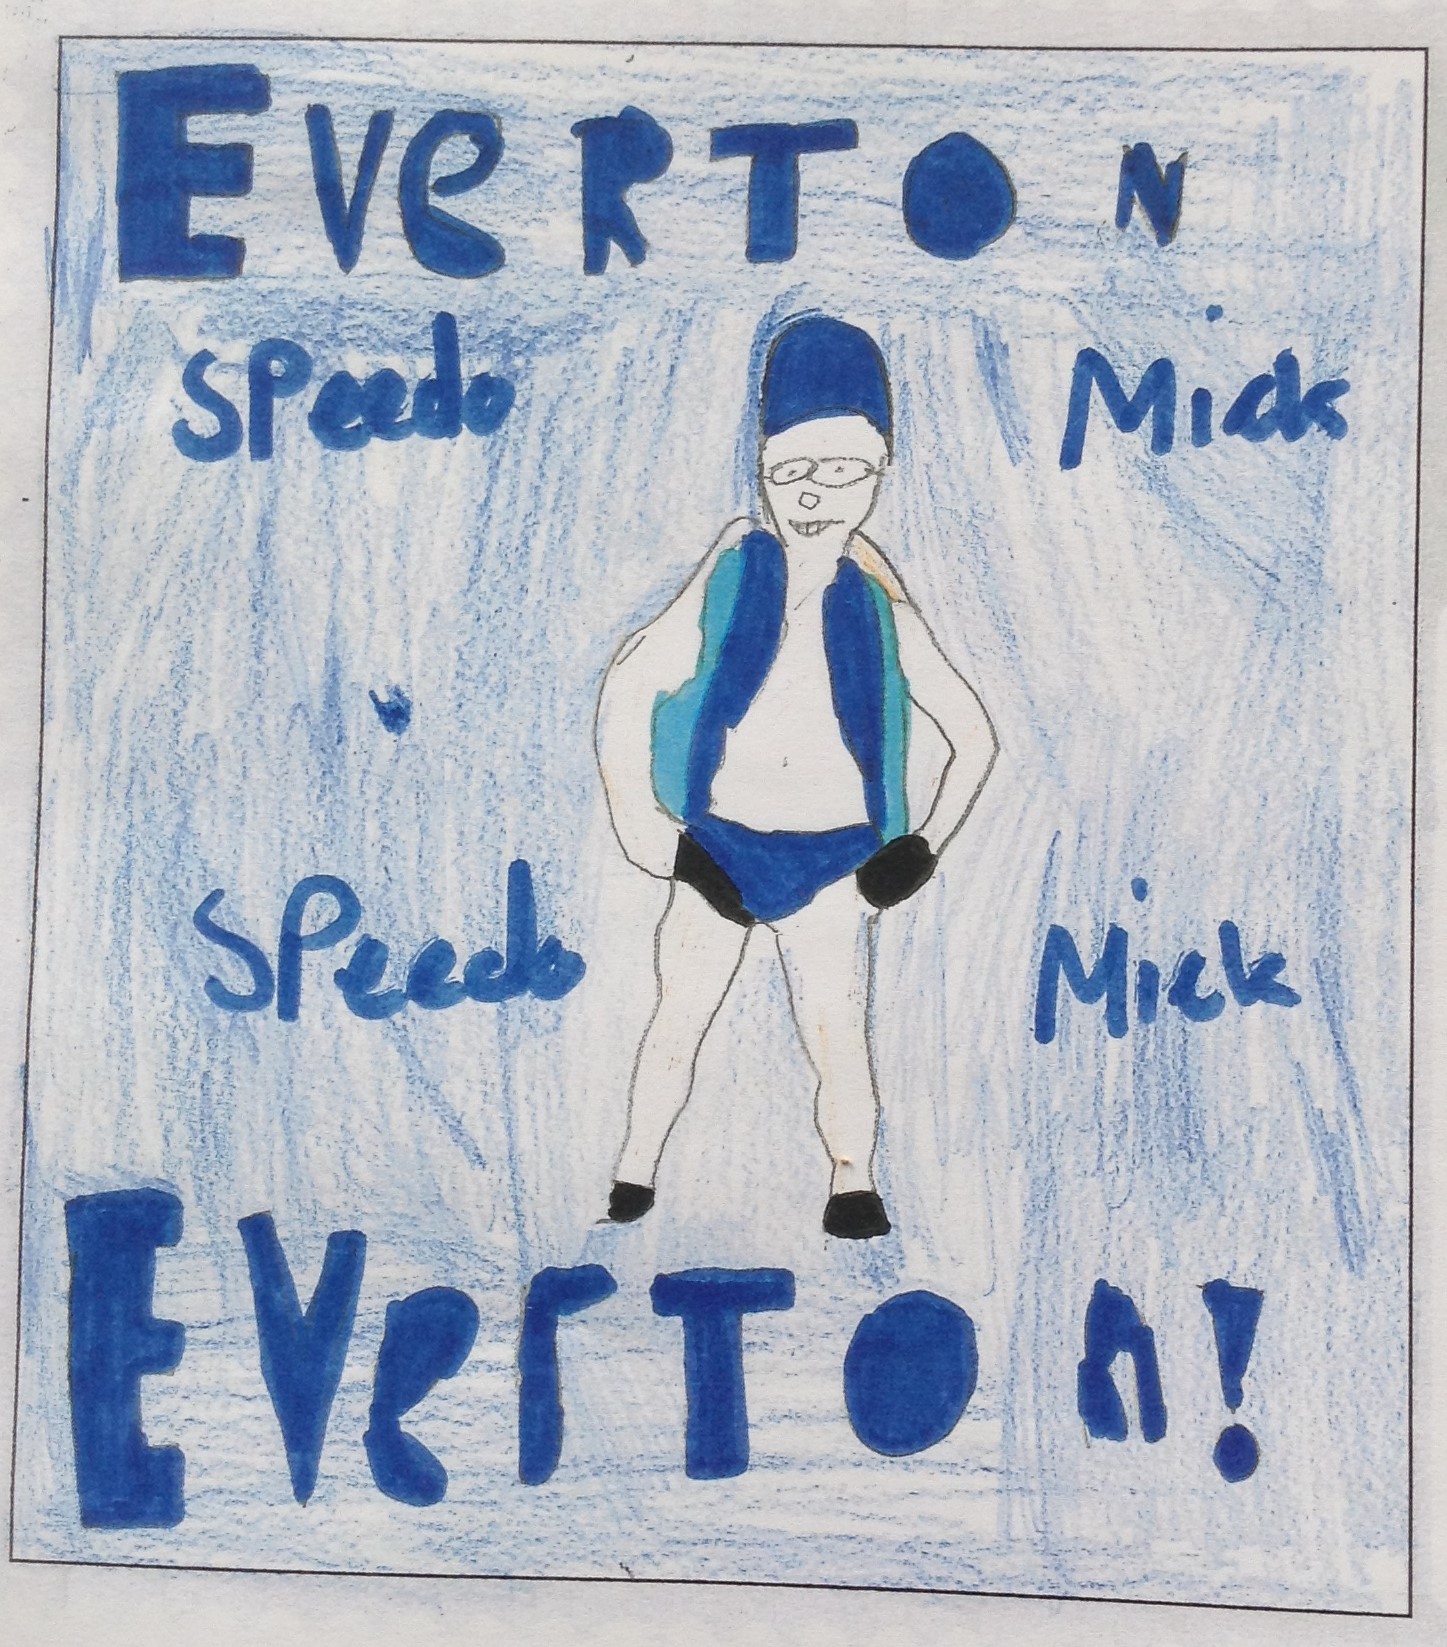 EVeRTON
SPeedo Mick
SPeedo Mick
EVerTOn!